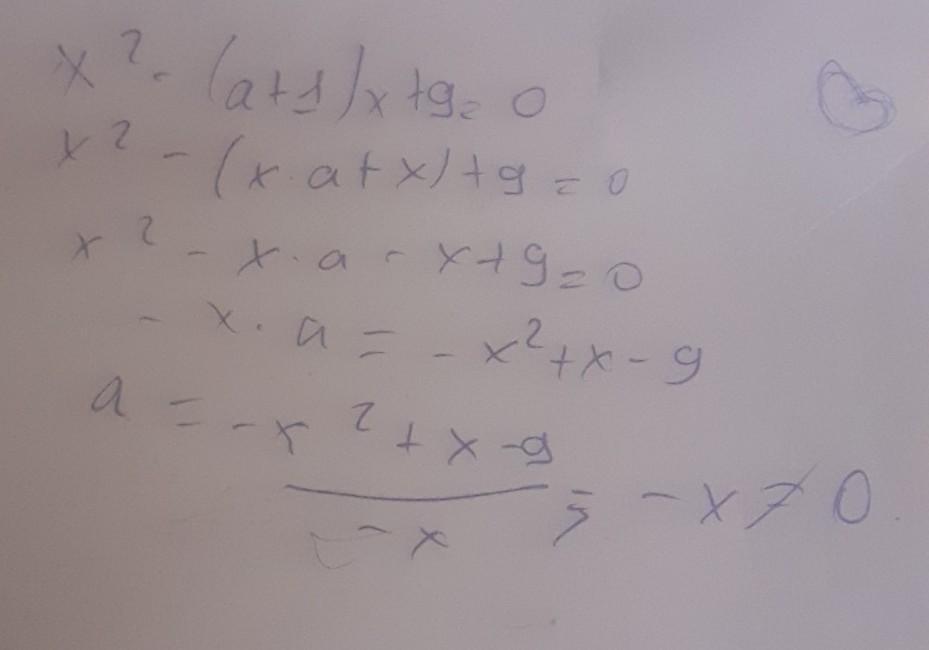 x² - (a+1)x+9=0
x² - (x·a+x)+9=0
x² - x·a - x+9=0
- x·a = -x²+x-9
a = -x²+x-9
-x ; -x≠0